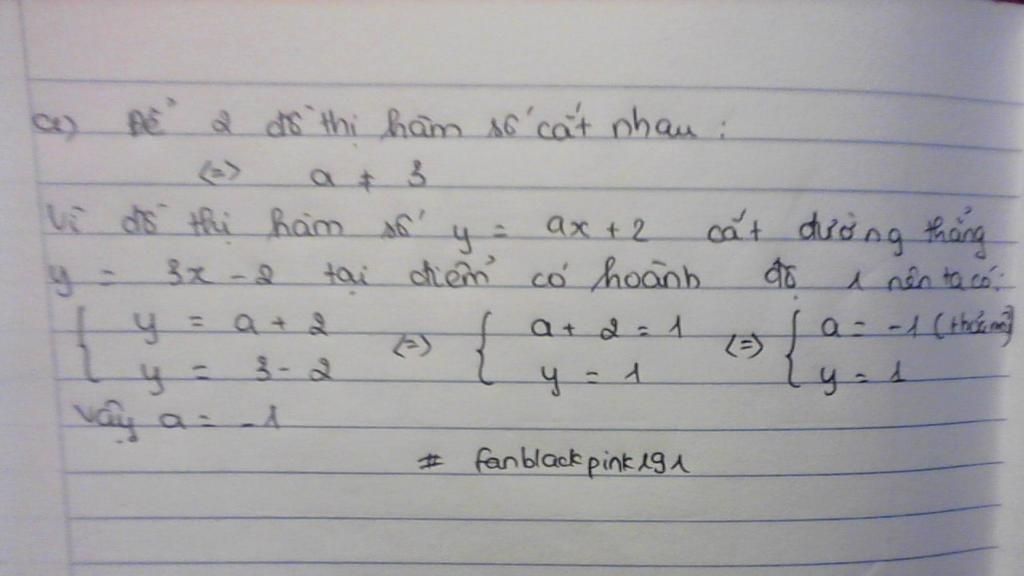 a) Để 2 đồ thị hàm số cắt nhau :
<=> a ≠ 3
Vì đồ thị hàm số y = ax + 2 cắt đường thẳng
y = 3x - 2 tại điểm có hoành độ 1 nên ta có:
{ y = a + 2 <=> { a + 2 = 1 <=> { a = -1 (thỏa mãn)
y = 3 - 2 y = 1 y = 1
Vậy a = -1
# fanblackpink191